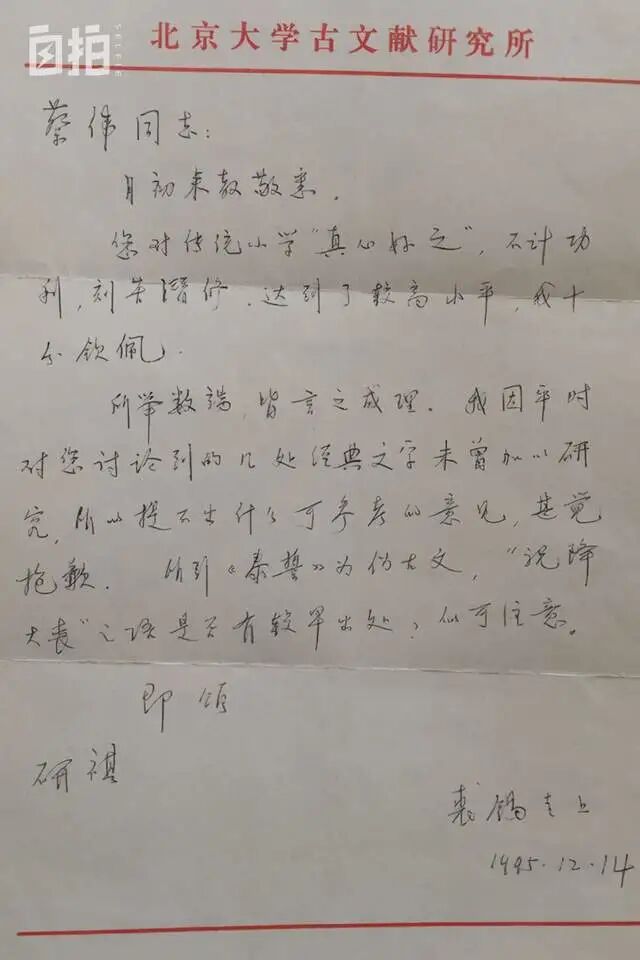 自拍
SELFIE
北京大学古文献研究所
蔡伟同志：
月初来教敬悉．
您对传统小学“真心好之”，不计功
利，刻苦潜修．达到了较高水平，我十
分钦佩．
所举数端，皆言之成理．我因平时
对您讨论到的几处经典文字未曾加以研
究，所以提不出什么可参考的意见，甚觉
抱歉．所引《泰誓》为伪古文，“祝降
大丧”之语是否有较早出处，似可注意。
即颂
研祺
裘锡圭上
1995．12．14